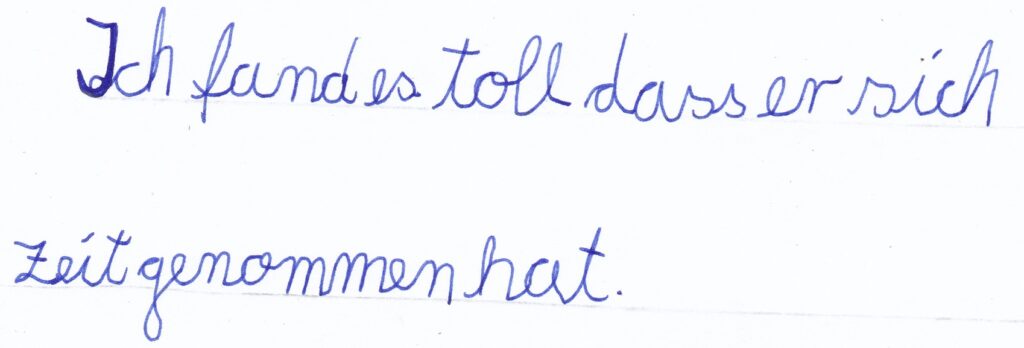 Ich fand es toll dass er sich
zeit genommen hat.